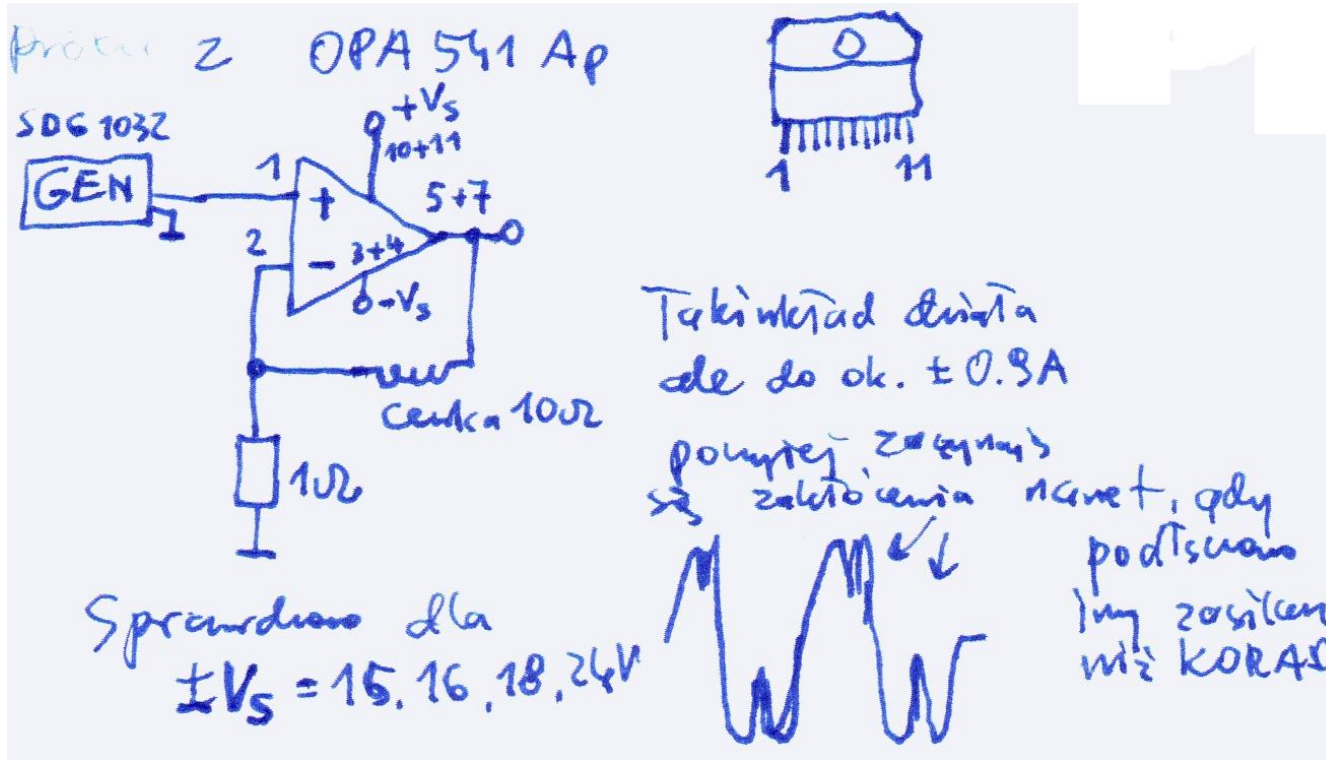 z OPA 541 AP
SDG 1032
GEN
1
+
2
-
+Vs
10+11
5+7
3+4
-Vs
cewka 10Ω
1Ω
1
11
Taki układ działa
ale do ok. ± 0.9A
powyżej zaczynają
są zakłócenia nawet, gdy
podłączono
inny zasilacz
niż KORAD
Sprawdzono dla
±Vs = 15, 16, 18, 24V